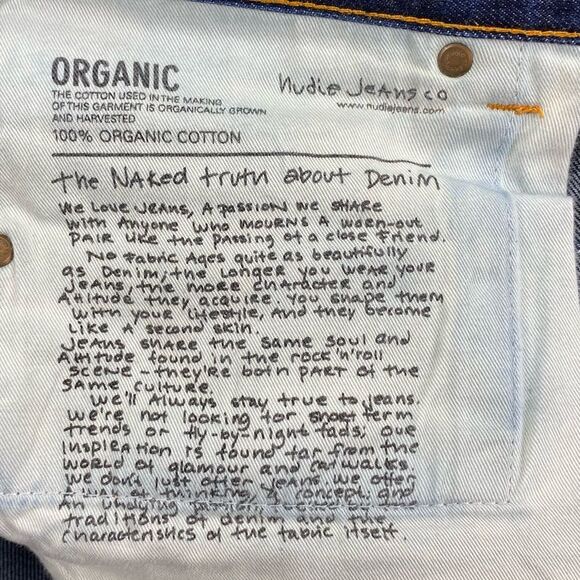 ORGANIC
THE COTTON USED IN THE MAKING
OF THIS GARMENT IS ORGANICALLY GROWN
AND HARVESTED
100% ORGANIC COTTON
nudie Jeans co
www.nudiejeans.com
the NAKed truth about Denim
We Love JeANS, A PASSION we SHARe
with Anyone who mourns A worn-out
PAIR LIKe the PASSing of a close friend.
No fabric Ages quite as beautifully
as Denim, the Longer you weAR your
JeAns, the more character and
Attitude they acquire. You shape them
with your Lifestyle, And they become
Like A second skin.
JeAns share the same soul and
Attitude found in the rock'n'roll
scene - they're both PART of the
same culture.
We'll Always stay true to jeans.
we're not looking for short term
trends or fly-by-night fads, our
inspiration is found far from the
world of glamour and catwalks
we don't just offer jeans. we offer
of thinking, a concept and
An undying
traditions of denim and the
characteristics of the fabric itself.